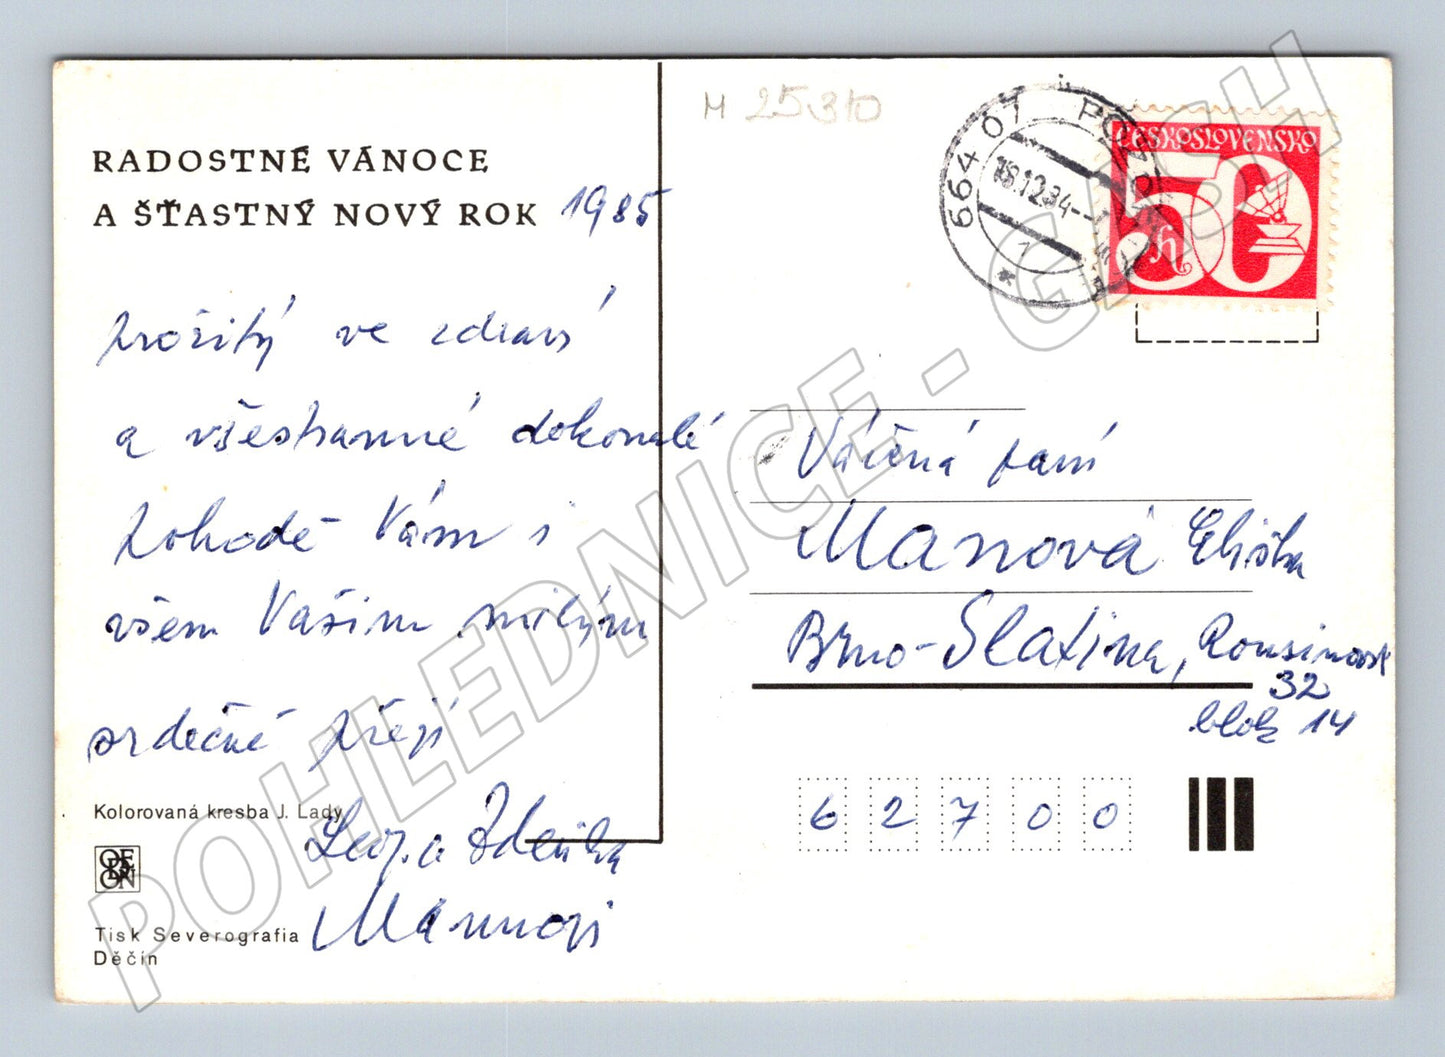 RADOSTNÉ VÁNOCE
A ŠŤASTNÝ NOVÝ ROK 1985
prožitý ve zdraví
a všestranné dokonalé
pohodě Vám i
všem Vašim milým
srdečně přejí
Leop. a Zdeňka
Mannovi
Kolorovaná kresba J. Lady
ODEON
Tisk Severografia
Děčín
M 25310
664 07 POZOŘICE
18.12.84
ČESKOSLOVENSKO
50 h
Váčená paní
Manová Eliška
Brno-Slatina, Rousínovsk
32
blok 14
6 2 7 0 0
POHLEDNICE - GASH